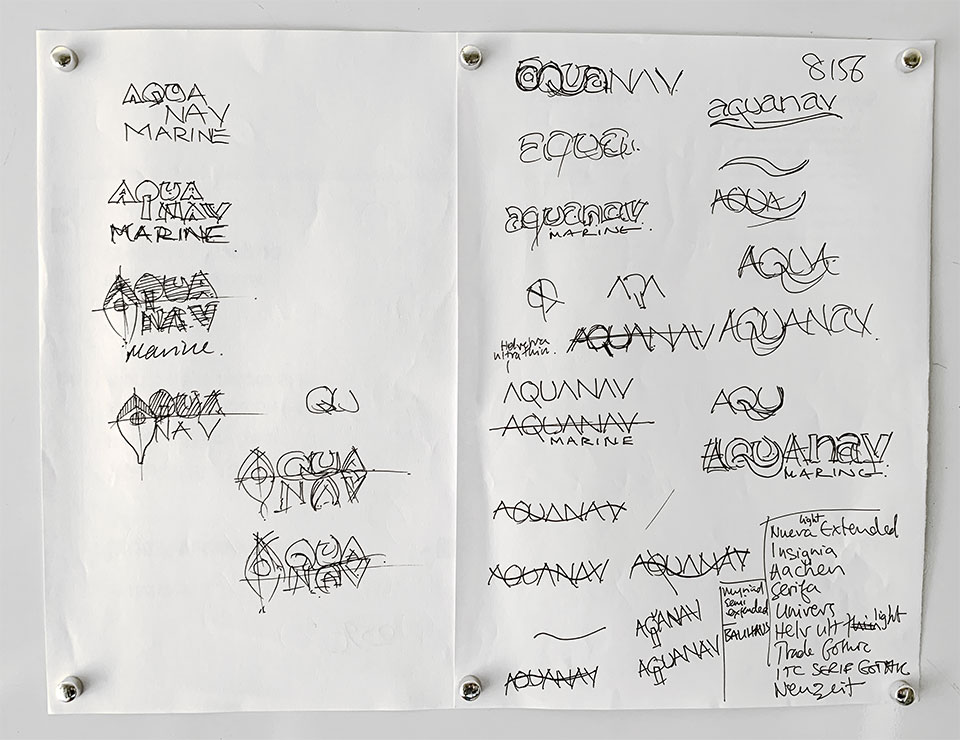 AQUA
NAV
MARINE
AQUA
NAV
MARINE
AQUA
NAV
Marine.
AQUA
NAV
QU
AQUA
NAV
AQUA
NAV
aquaNAV
8156
aquanav
aqua
AQUA
aquanav
MARINE
AQUA
Helvetica
ultra thin
AQUANAV
AQUANAV
AQUANAV
AQUANAV
MARINE
AQU
AQUAnav
MARINE
AQUANAV
AQUANAV
AQUANAV
AQUANAV
AQUANAV
AQUANAV
myriad
semi
extended
BAUHAUS
light
Nueva Extended
Insignia
Aachen
Serifa
Univers
Helv ult thin light
Trade Gothic
ITC SERIF GOTHIC
Neuzeit